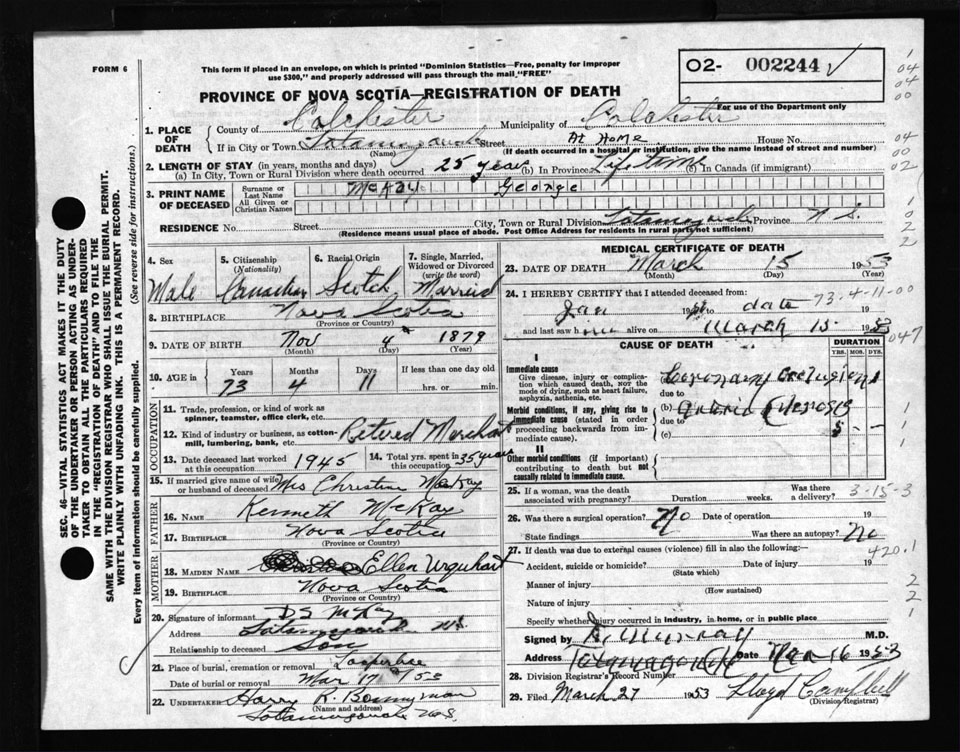 FORM 6
This form if placed in an envelope, on which is printed "Dominion Statistics—Free, penalty for improper
use $300," and properly addressed will pass through the mail "FREE"
PROVINCE OF NOVA SCOTIA—REGISTRATION OF DEATH
O2- 002244
For use of the Department only
SEC. 46—VITAL STATISTICS ACT MAKES IT THE DUTY
OF THE UNDERTAKER OR PERSON ACTING AS UNDER-
TAKER TO OBTAIN ALL THE PARTICULARS REQUIRED
IN THE "REGISTRATION OF DEATH" AND TO FILE THE
SAME WITH THE DIVISION REGISTRAR WHO SHALL ISSUE THE BURIAL PERMIT.
WRITE PLAINLY WITH UNFADING INK. THIS IS A PERMANENT RECORD.
Every item of information should be carefully supplied. (See reverse side for instructions.)
1. PLACE OF DEATH
County of Colchester Municipality of Colchester
If in City or Town Tatamagouche Street At Home House No.
(Name) (If death occurred in a hospital or institution, give the name instead of street and number)
2. LENGTH OF STAY (in years, months and days)
(a) In City, Town or Rural Division where death occurred 25 years (b) In Province Life time (c) In Canada (if immigrant)
3. PRINT NAME OF DECEASED
Surname or Last Name McKay George
All Given or Christian Names
RESIDENCE No. Street City, Town or Rural Division Tatamagouche Province N. S.
(Residence means usual place of abode. Post Office Address for residents in rural parts not sufficient)
4. Sex 5. Citizenship (Nationality) 6. Racial Origin 7. Single, Married, Widowed or Divorced (write the word)
Male Canadian Scotch Married
8. BIRTHPLACE Nova Scotia
(Province or Country)
9. DATE OF BIRTH Nov 4 1879
(Month) (Day) (Year)
10. AGE in Years Months Days If less than one day old
73 4 11 hrs. or min.
OCCUPATION
11. Trade, profession, or kind of work as spinner, teamster, office clerk, etc.
12. Kind of industry or business, as cotton-mill, lumbering, bank, etc. Retired Merchant
13. Date deceased last worked at this occupation 1945 14. Total yrs. spent in this occupation 35 years
15. If married give name of wife or husband of deceased Mrs Christine McKay
FATHER
16. NAME Kenneth McKay
17. BIRTHPLACE Nova Scotia
(Province or Country)
MOTHER
18. MAIDEN NAME Ellen Urquhart
19. BIRTHPLACE Nova Scotia
(Province or Country)
20. Signature of informant D S McKay
Address Tatamagouche NS
Relationship to deceased Son
21. Place of burial, cremation or removal
Date of burial or removal Mar 17 / 53
22. UNDERTAKER Harry R. Bonnyman
(Name and address)
Tatamagouche N.S.
MEDICAL CERTIFICATE OF DEATH
23. DATE OF DEATH March 15 1953
(Month) (Day)
24. I HEREBY CERTIFY that I attended deceased from:
Jan 19 to date 19 73-4-11-00
and last saw h im alive on March 15 1953
047
CAUSE OF DEATH DURATION
YRS. MOS. DYS.
I
Immediate cause
Give disease, injury or complication which caused death, not the mode of dying, such as heart failure, asphyxia, asthenia, etc.
(a) Coronary Occlusion
due to
Morbid conditions, if any, giving rise to immediate cause (stated in order proceeding backwards from immediate cause).
(b)
due to
(c) 5 - -
II
Other morbid conditions (if important) contributing to death but not causally related to immediate cause.
25. If a woman, was the death associated with pregnancy? Duration weeks. Was there a delivery? 3-15-3
26. Was there a surgical operation? No Date of operation 19
State findings Was there an autopsy? No
27. If death was due to external causes (violence) fill in also the following:— 420.1
Accident, suicide or homicide? Date of injury 19
(State which)
Manner of injury
(How sustained)
Nature of injury
Specify whether injury occurred in industry, in home, or in public place
Signed by D. Murray M.D.
Address Tatamagouche Date Mar 16 1953
28. Division Registrar's Record Number
29. Filed March 27 1953 Lloyd Campbell
(Division Registrar)